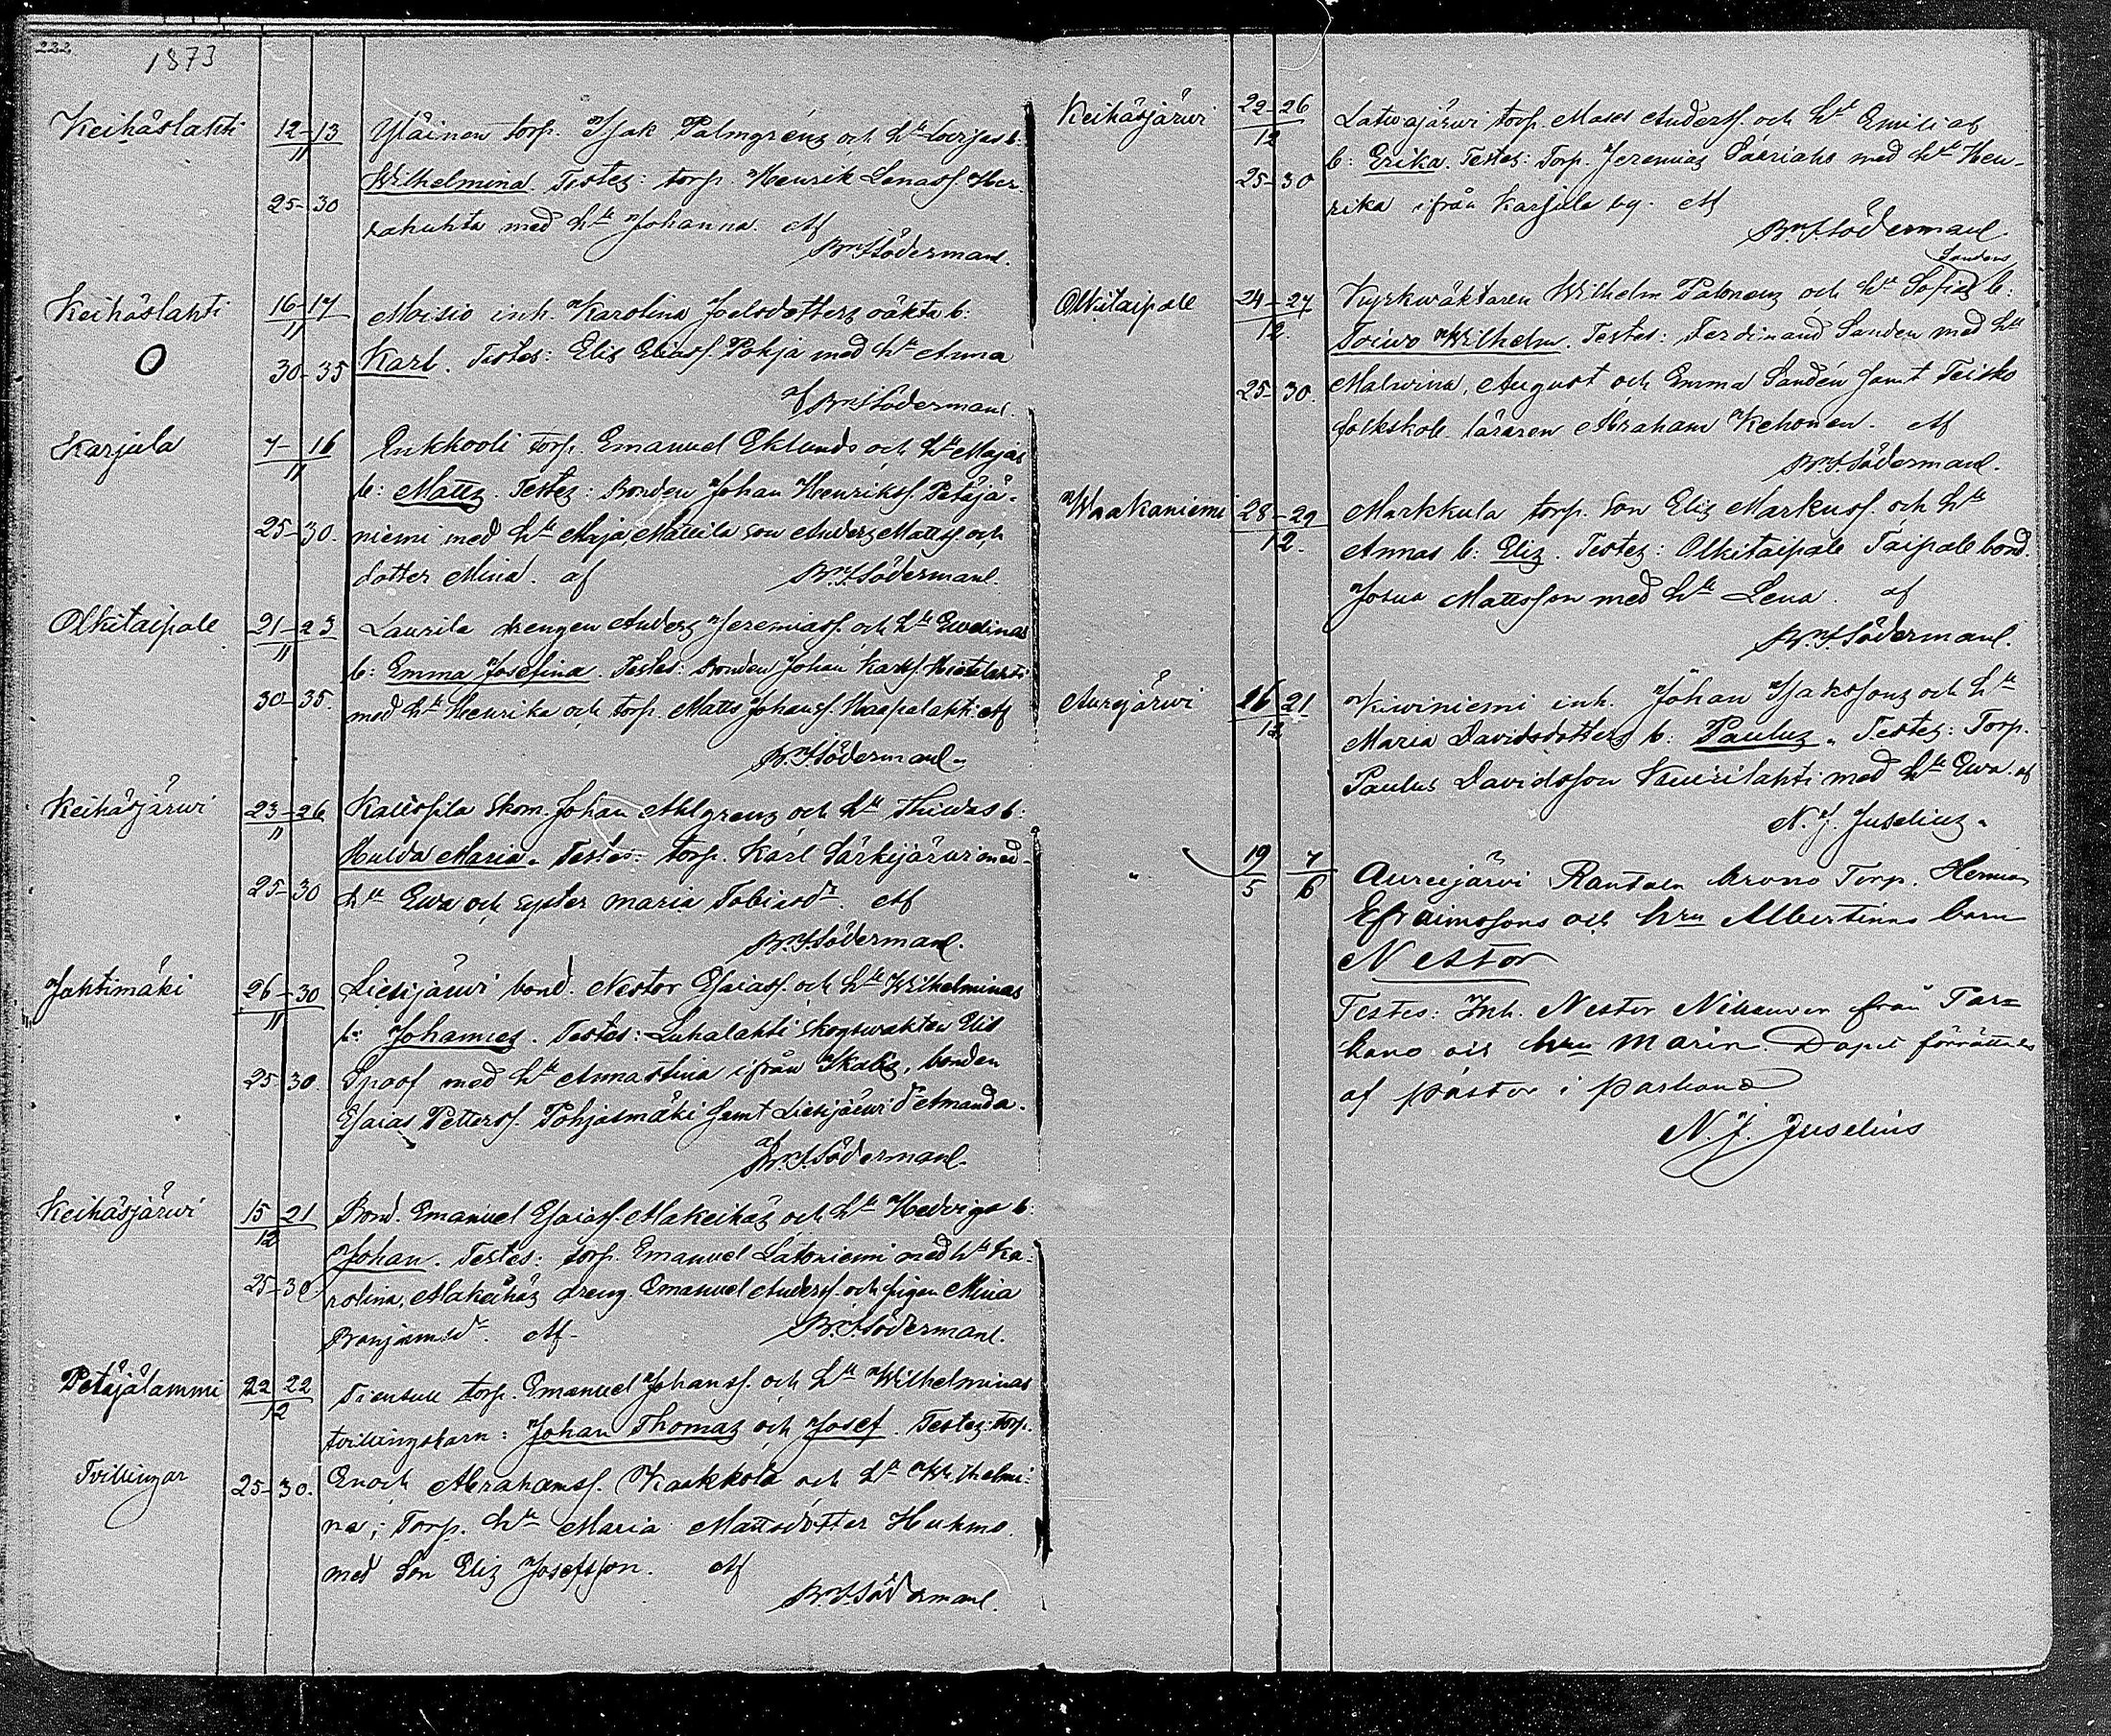 222
1873
Keihäslahti 12-13 Yläinen torp. Isak Palmgréns och h:u Lovisas b:
11 Wilhelmina. Testes: torp. Henrik Lenass. Her-
25-30 rahuhta med h:u Johanna. Af
Br. F. Söderman.
Keihäslahti 16-17 Moisio inh. Karolina Joelsdotters oäkta b:
11
O 30-35 Karl. Testes: Elis Eliass. Pohja med h:u Anna
af Br. F. Söderman.
Karjula 7-16 torp. Emanuel Eklunds och h:u Majas
11 b: Matts. Testes: Bonden Johan Henrikss. Petäjä-
25-30. niemi med h:u Maja, Mattila son Anders Mattss och
dotter Mina. af Br. F. Söderman.
Olkitaipale 21-23 Laurila drengen Anders Jeremiass. och h:u Evelinas
11 b: Emma Josefina. Testes: Bonden Johan Karlss. Hietalahti
30-35. med h:u Henrika och torp. Matts Johanss. Haapalahti. Af
Br. F. Söderman.
Keihäsjärwi 23-26 skom. Johan Ahlgrens och h:u b:
11 Hulda Maria. Testes: torp. Karl Särkijärwi med
25-30 h:u Ewa och syster Maria Tobiasd:r. Af
Br. F. Söderman.
Jahtimäki 26-30 Liesijärwi bond. Nestor Esaiass. och h:u Wilhelminas
11 b: Johannes. Testes: Luhalahti skogswaktar Elis
25-30. Spoof med h:u Annastina ifrån Ikalis, bonden
Esaias Petterss. Pohjasmäki samt Liesijärwi d:r Amanda.
af Br. F. Söderman.
Keihäsjärwi 15 21 Bond. Emanuel Esaiass. Alakeihäs och h:u Hedvigs b:
12 Johan. Testes: torp. Emanuel Latoniemi med h:u Ka-
25-30 rolina, Alakeihäs dreng Emanuel Anderss. och pigan Mina
Benjamsd:r. Af Br. F. Söderman.
Petäjälammi 22 22 Tiensuu torp. Emanuel Johanss. och h:u Wilhelminas
12 tvillingbarn: Johan Thomas och Josef. Testes: torp.
Tvillingar 25-30. Enoch Abrahamss. Kaakkola och h:u Wilhelmi-
na; Torp. h:u Maria Mattsdotter
med Son Elis Josefsson. Af
Br. F. Söderman.
Keihäsjärwi 22-26 Latwajärwi torp. Moses Anderss. och h:u Emilias
12 b: Erika. Testes: Torp. Jeremias med h:u Hen-
25-30 rika ifrån Karjula by. Af
Br. F. Söderman.
Sandens
Olkitaipale 24-27 Kyrkwäktaren Wilhelm och h:u Sofias b:
12. Toiwo Wilhelm. Testes: Ferdinand Sanden med h:u
25-30. Malwina, August och Emma Sandén samt Teisko
folkskole läraren Abraham Kehonen. Af
Br. F. Söderman.
Waakaniemi 28-29 Markkula torp. Son Elis Markuss. och h:u
12. Annas b: Elis. Testes: Olkitaipale Taipale bond.
Josua Mattsson med h:u Lena. af
Br. F. Söderman.
Aurejärwi 16 21 Kiwiniemi inh. Johan Isakssons och h:u
12 Maria Davidsdotters b: Paulus. Testes: Torp.
Paulus Davidsson med h:u Ewa. af
N. J. Juselius.
" 19 7 Aurejärvi Rantala krono Torp. Herman
5 6 Efraimssons och hru Albertinas barn
Nestor
Testes: Inh. Nestor från Par-
kano och hru Maria. Dopet förrättades
af pastor i Parkano
N. J. Juselius